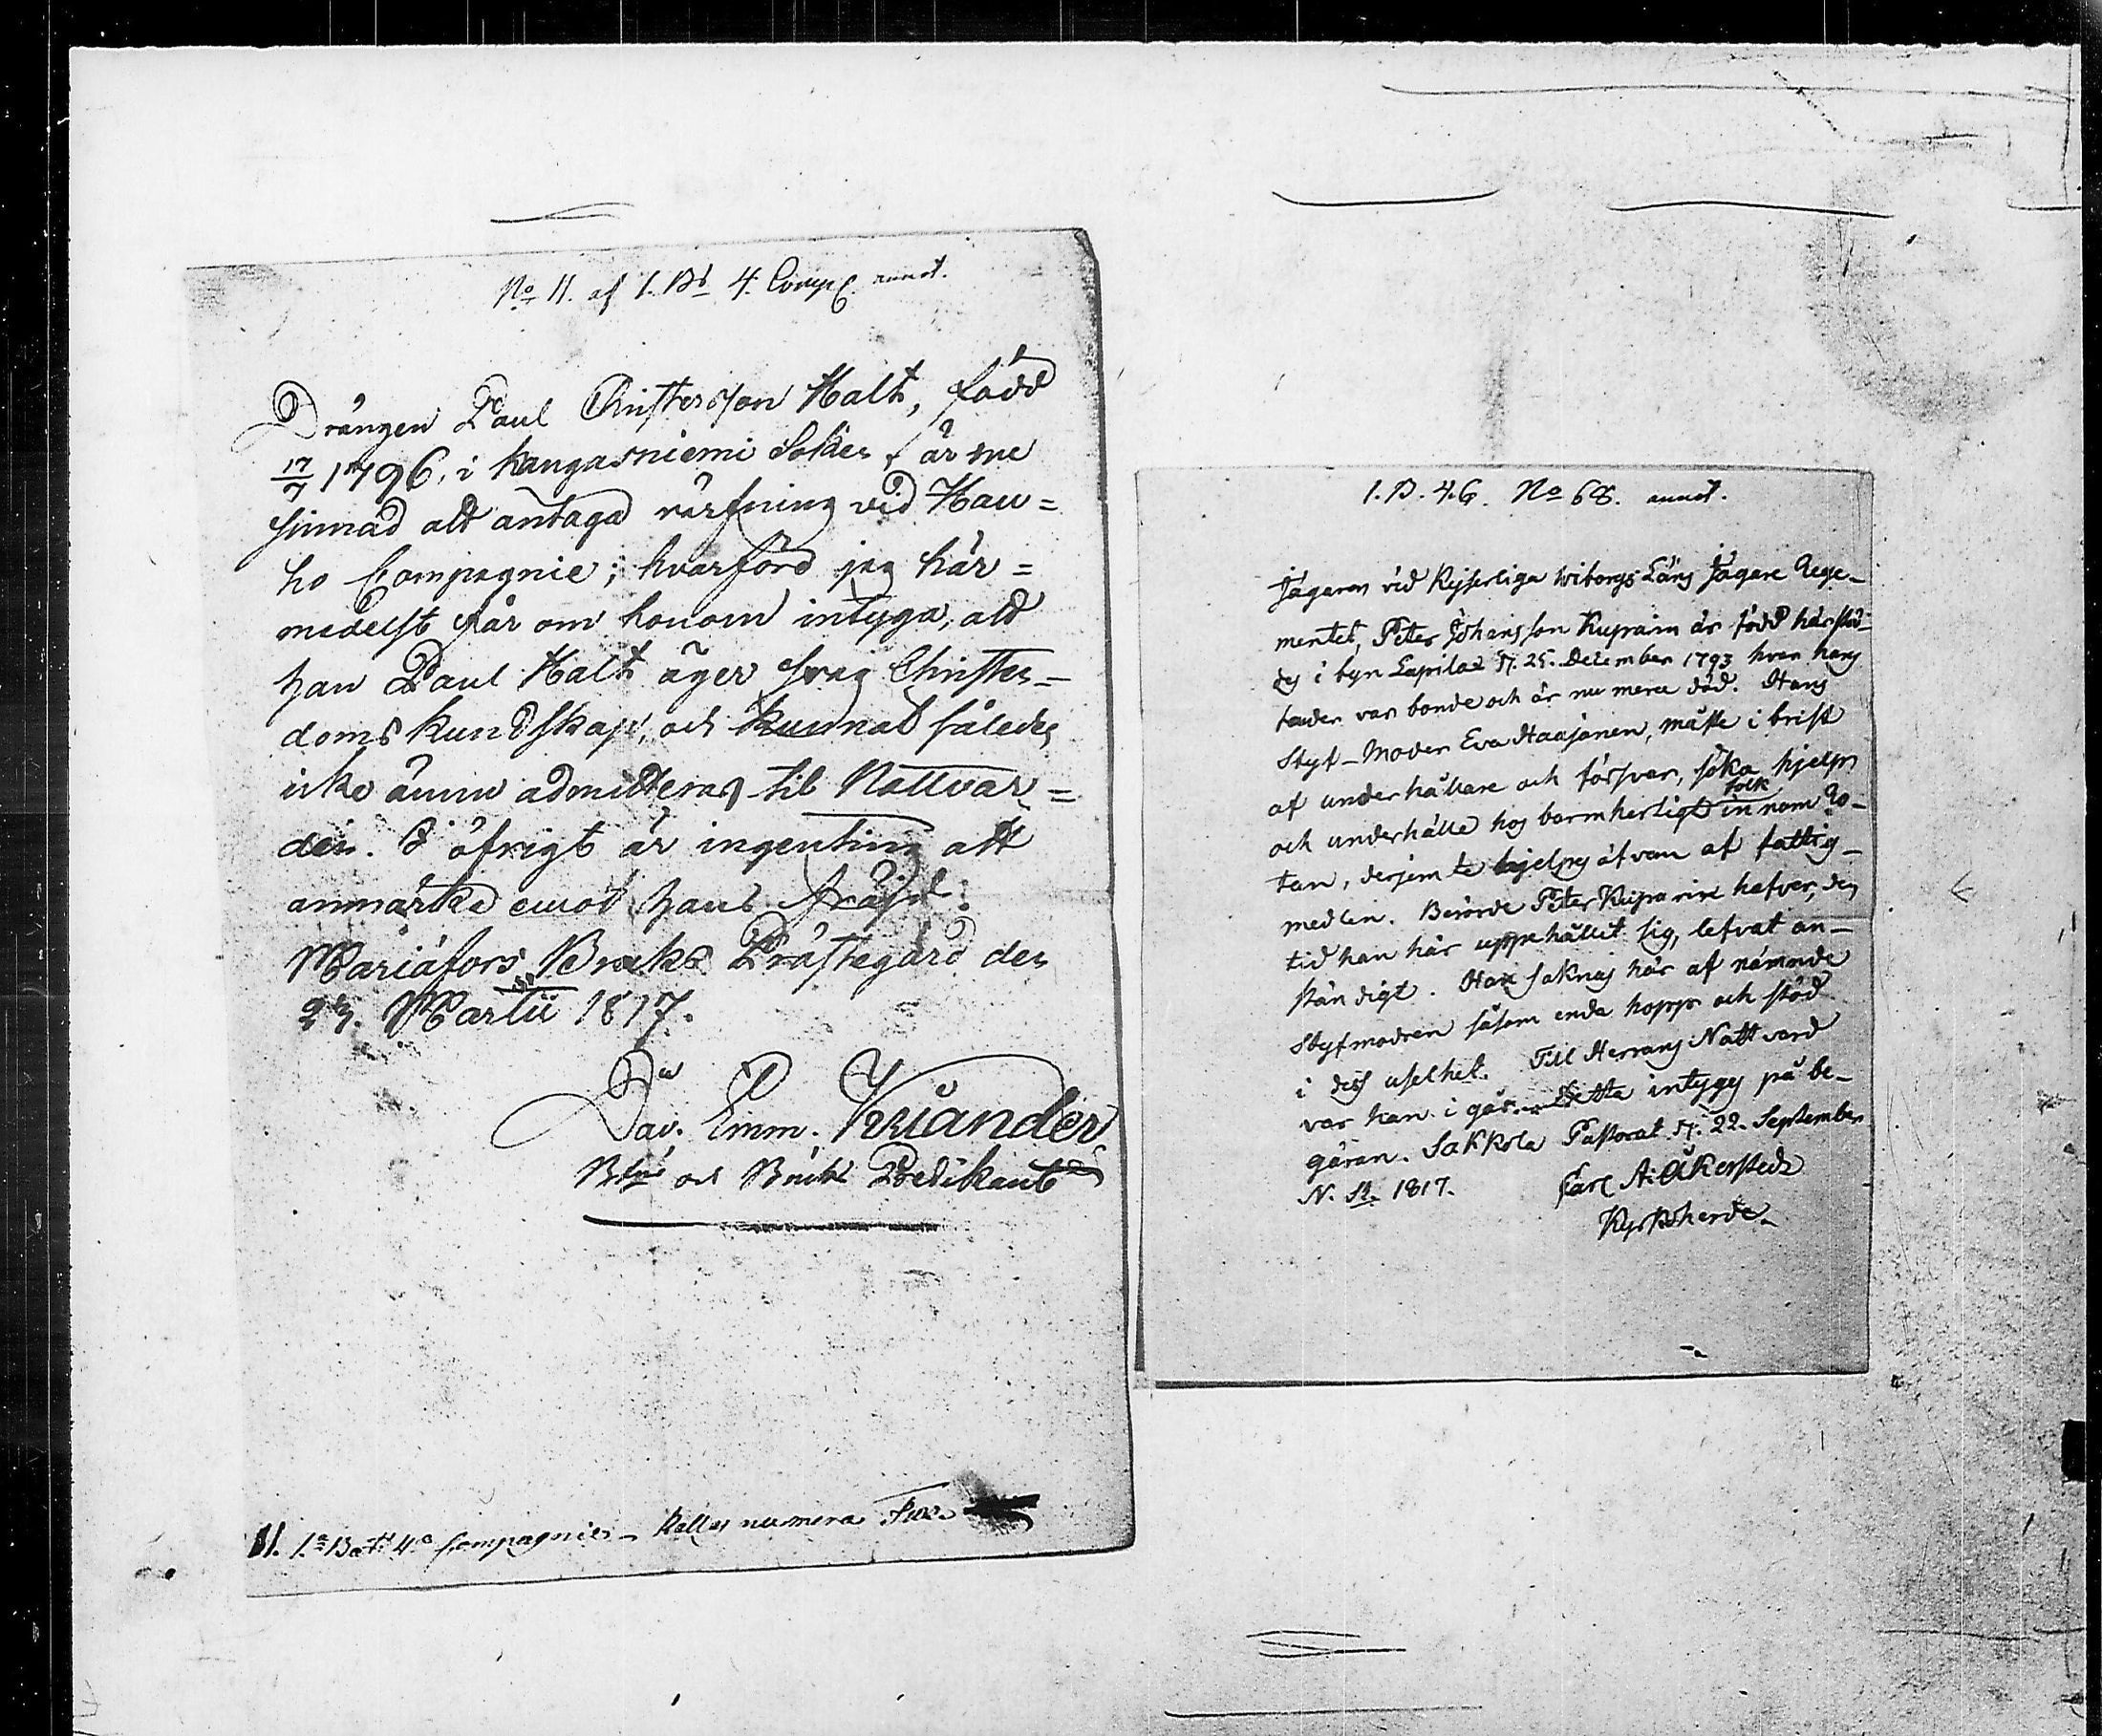 No 11. af 1. Bt 4. Comp. annot.
Drängen Paul Christersson Halt, född
17/7 1796, i Kangasniemi Soken, är
sinnad att antaga värfning vid Hau=
ho Compagnie; hvarföre jag här=
medelst får om honom intyga, att
han Paul Halt äger svag Christen=
doms kundskap, och kunnat således
icke ännu admitteras til Nattvar=
den. I öfrigt är ingenting att
anmärka emot hans fräjd.
Mariæfors Bruks Prästegård den
23. Martii 1817.
Dav. Emm. Kriander
och Bruks Predikant
11. 1a Bat. 4a Compagnie – Kallas numera
1. B. 4. C. No 68. annot.
Jägaren vid Kejserliga Wiborgs Läns Jägare Rege-
mentet, Peter Johansson Kuparin är född härstä-
des i byn Lapilax d. 25. December 1793 hvar hans
fader var bonde och är nu mera död. Hans
Styf-Moder Eva Haajanen, måste i brist
af underhållare och försvar, söka hjelp
och underhålle hos barmhertigt folk innom Ro-
tan, derjemte hjelpes äfvan af fattig-
medlen. Berörde Peter Kuparin hafver, den
tid han här uppehållit sig, lefvat an-
ständigt. Han saknas här af nämnde
Styfmodren såsom enda hopp och stöd
i dess uselhet. Till Herrans Nattvard
var han i går. Detta intygas på be-
gäran. Sakkola Pastorat d. 22. September
N. St. 1817. Carl A. Åkerstedt
Kyrkoherde.